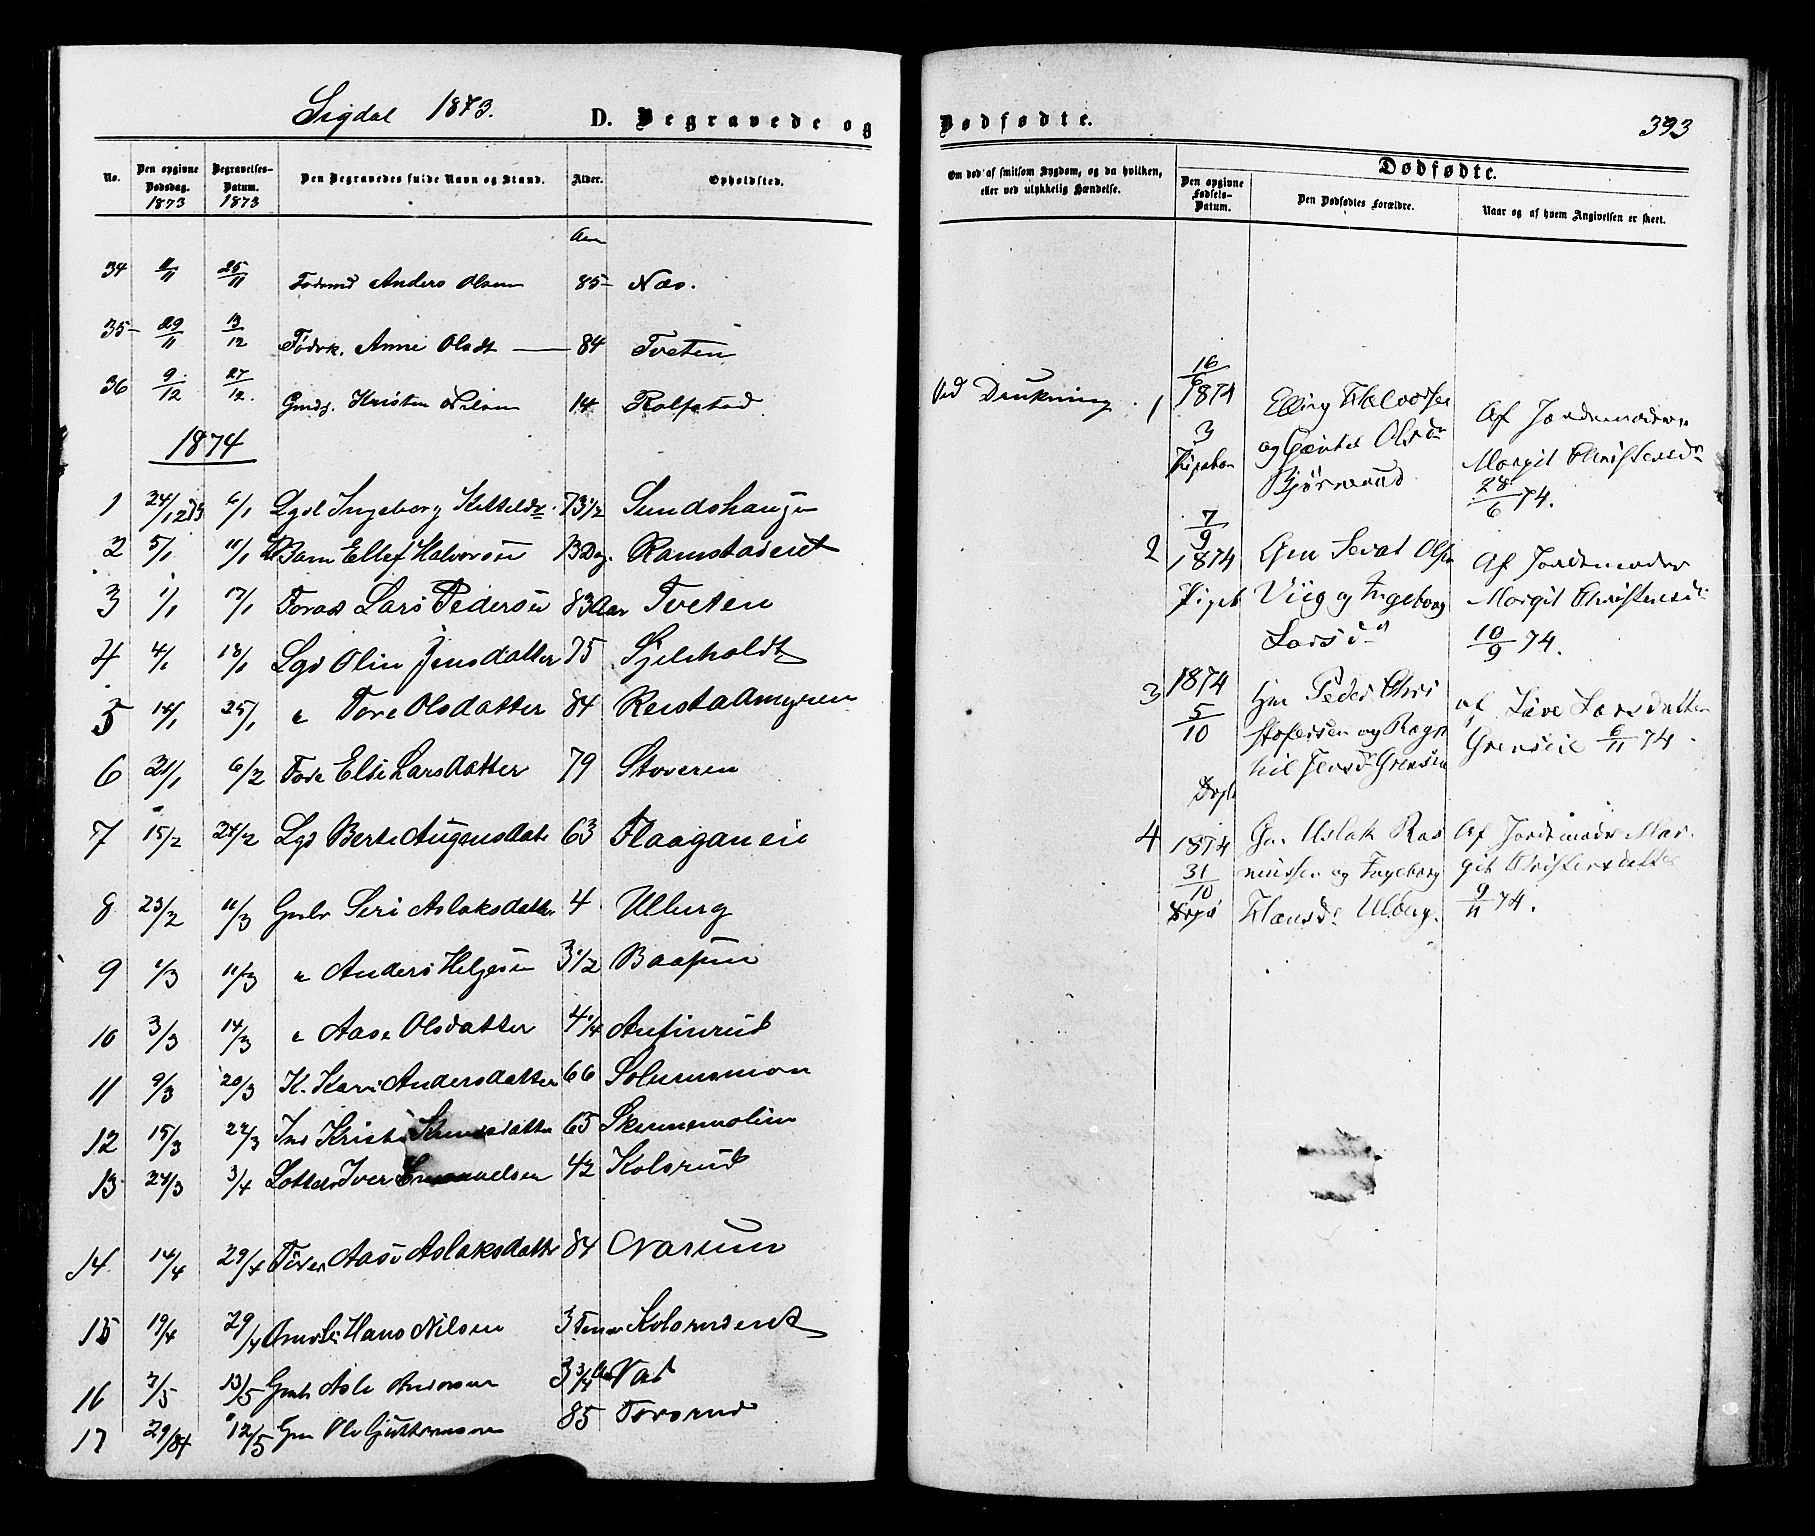 Sigdal 1873.
D. Begravede og
No.
Den opgivne Dødsdag. 1873
Begravelses-Datum. 1873
Den Begravedes fulde Navn og Stand.
Alder.
Opholdsted.
Aar
34 25/11 Anders Olsen 85 Næs.
35 29/11 13/12 Føderk. Anne Olsdt 84 Tveten
36 9/12 27/12. Kristen Nilsen 14 Rolfstad.
1874
1 24/12 73 6/1 Lgd Ingeborg Kittelsdr. 73 1/2 Sundshaugen
2 5/1 11/1 Barn Ellef Halvorsen 13 Dag. Ramstadeiet
3 1/1 17/1 Lars Pedersen 83 Aar Tveten
4 4/1 18/1 Lgd Olin Jensdatter 75 Sjelsholdt
5 14/1 25/1 " Tore Olsdatter 84 Reistadmyren
6 21/1 6/2 Else Larsdatter 79 Stoveren
7 15/2 24/2 Lgd Berte Augensdatt 63 Flaaganeie
8 23/2 11/3 Siri Aslaksdatter 4 Ulberg
9 1/3 11/3 " Anders Helgesen 3 1/2 Baasum
10 3/3 14/3 " Aase Olsdatter 4 1/4 Anfinrud
11 9/3 20/3 K. Kari Andersdatter 66 Solumsmoen
12 15/3 22/3 Ind Kristi 65 Skunsmolien
13 24/3 3/4 Iver 42 Kolsrud
14 14/4 29/4 Aase Aslaksdatter 84 Narum
15 19/4 29/4 Hans Nilsen 3 Kolsrudeiet
16 3/5 13/5 Asle Andersen 3 3/4 Aar Vad
17 29/4 12/5 Gm Ole Guttormsen 85 Toversrud
Dødfødte.
393
Om død af smitsom Sygdom, og da hvilken, eller ved ulykkelig Hændelse.
Dødfødte.
Den opgivne Fødsels-Datum.
Den Dødfødtes Forældre.
Naar og af hvem Angivelsen er skeet.
Ved Drukning.
1 16/6 1874 Elling Halvorsen Af Jordemoder
3 og Olsdr Margit Christensdr
Bjørnerud 28/6 74.
2 7/9 1874 Gm Sevat Olsen Af Jordemoder
Viig og Ingeborg Margit Christensdr
Larsdr 10/9 74.
3 1874 Gm Peder Chri af Live Larsdatter
5/10 stofersen og Ragn Grenseie 6/11 74.
hil Jensd Grensen
4 1874 Gm Aslak Ras Af Jordemoder Mar
31/10 mussen og Ingeborg git Christensdatter
Hansdr Ulberg. 9/11 74.